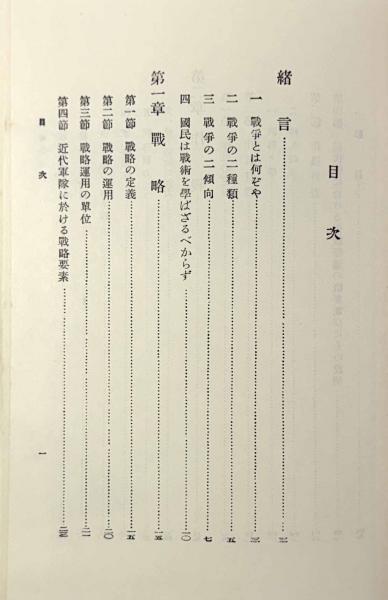 目次
緒言
一 戰爭とは何ぞや
二 戰爭の二種類……五
三 戰爭の二傾向……七
四 國民は戰術を學ばざるべからず……一〇
第一章 戰略……一五
第一節 戰略の定義……一五
第二節 戰略の運用……二〇
第三節 戰略運用の單位
第四節 近代軍隊に於ける戰略要素
目次 一